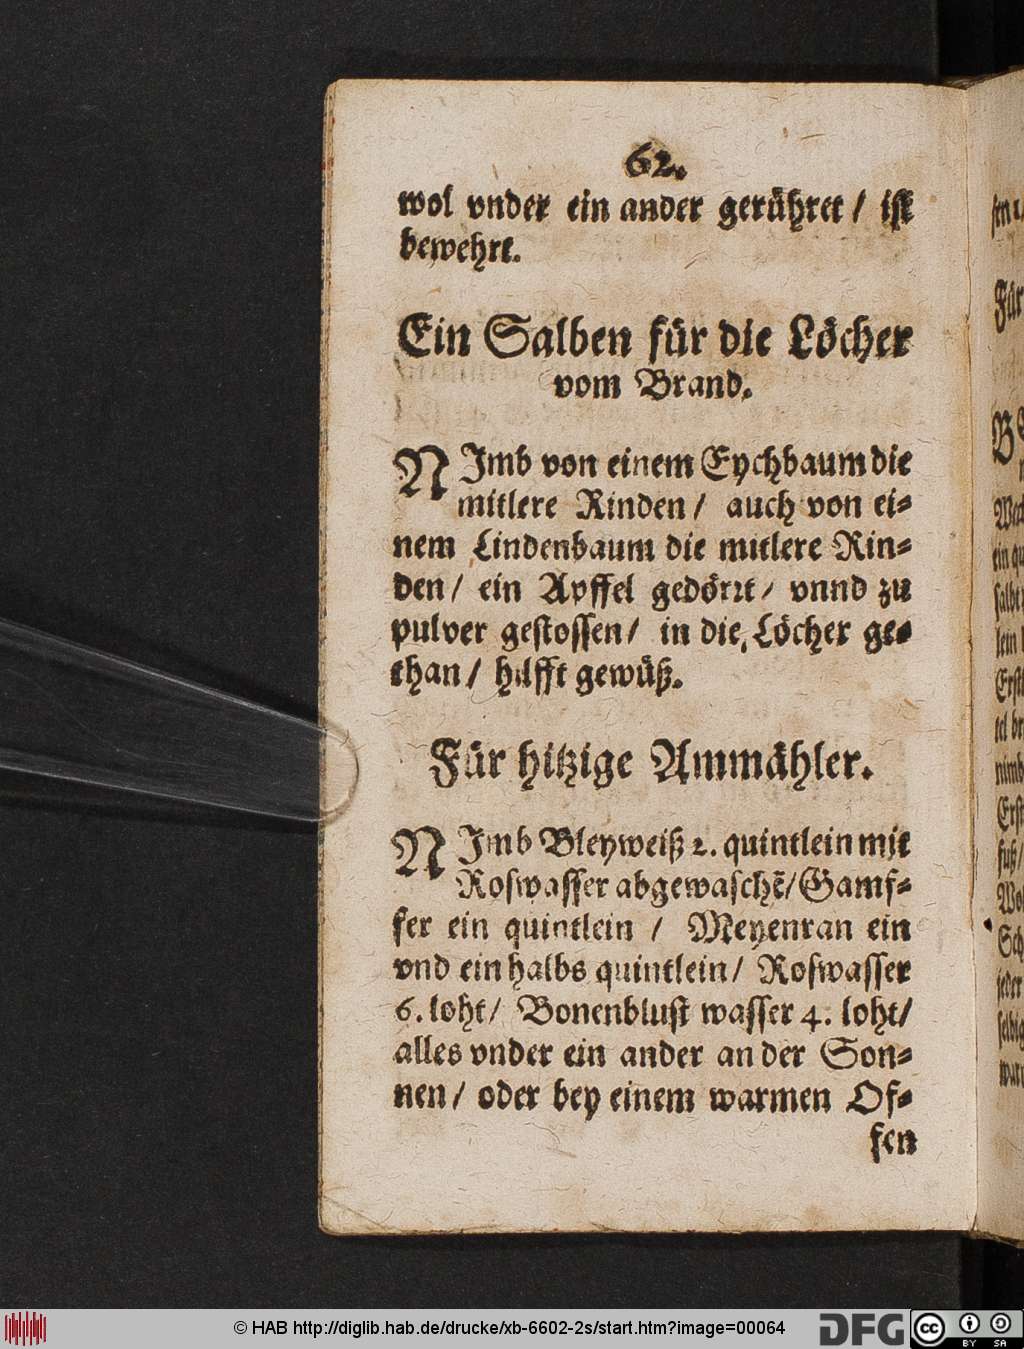 62.
wol vnder ein ander gerühret / ist
bewehrt.
Ein Salben für die Löcher
vom Brand.
NJmb von einem Eychbaum die
mitlere Rinden / auch von ei-
nem Lindenbaum die mitlere Rin-
den / ein Apffel gedörzt / vnnd zu
pulver gestossen / in die Löcher ge-
than / hilfft gewüß.
Für hitzige Ammähler.
NJmb Bleyweiß 2. quintlein mit
Roswasser abgewaschẽ / Gamf-
fer ein quintlein / Meyenran ein
vnd ein halbs quintlein / Roswasser
6. loht / Bonenblust wasser 4. loht /
alles vnder ein ander an der Son-
nen / oder bey einem warmen Of-
fen
Für
© HAB http://diglib.hab.de/drucke/xb-6602-2s/start.htm?image=00064
DFG
cc
BY SA